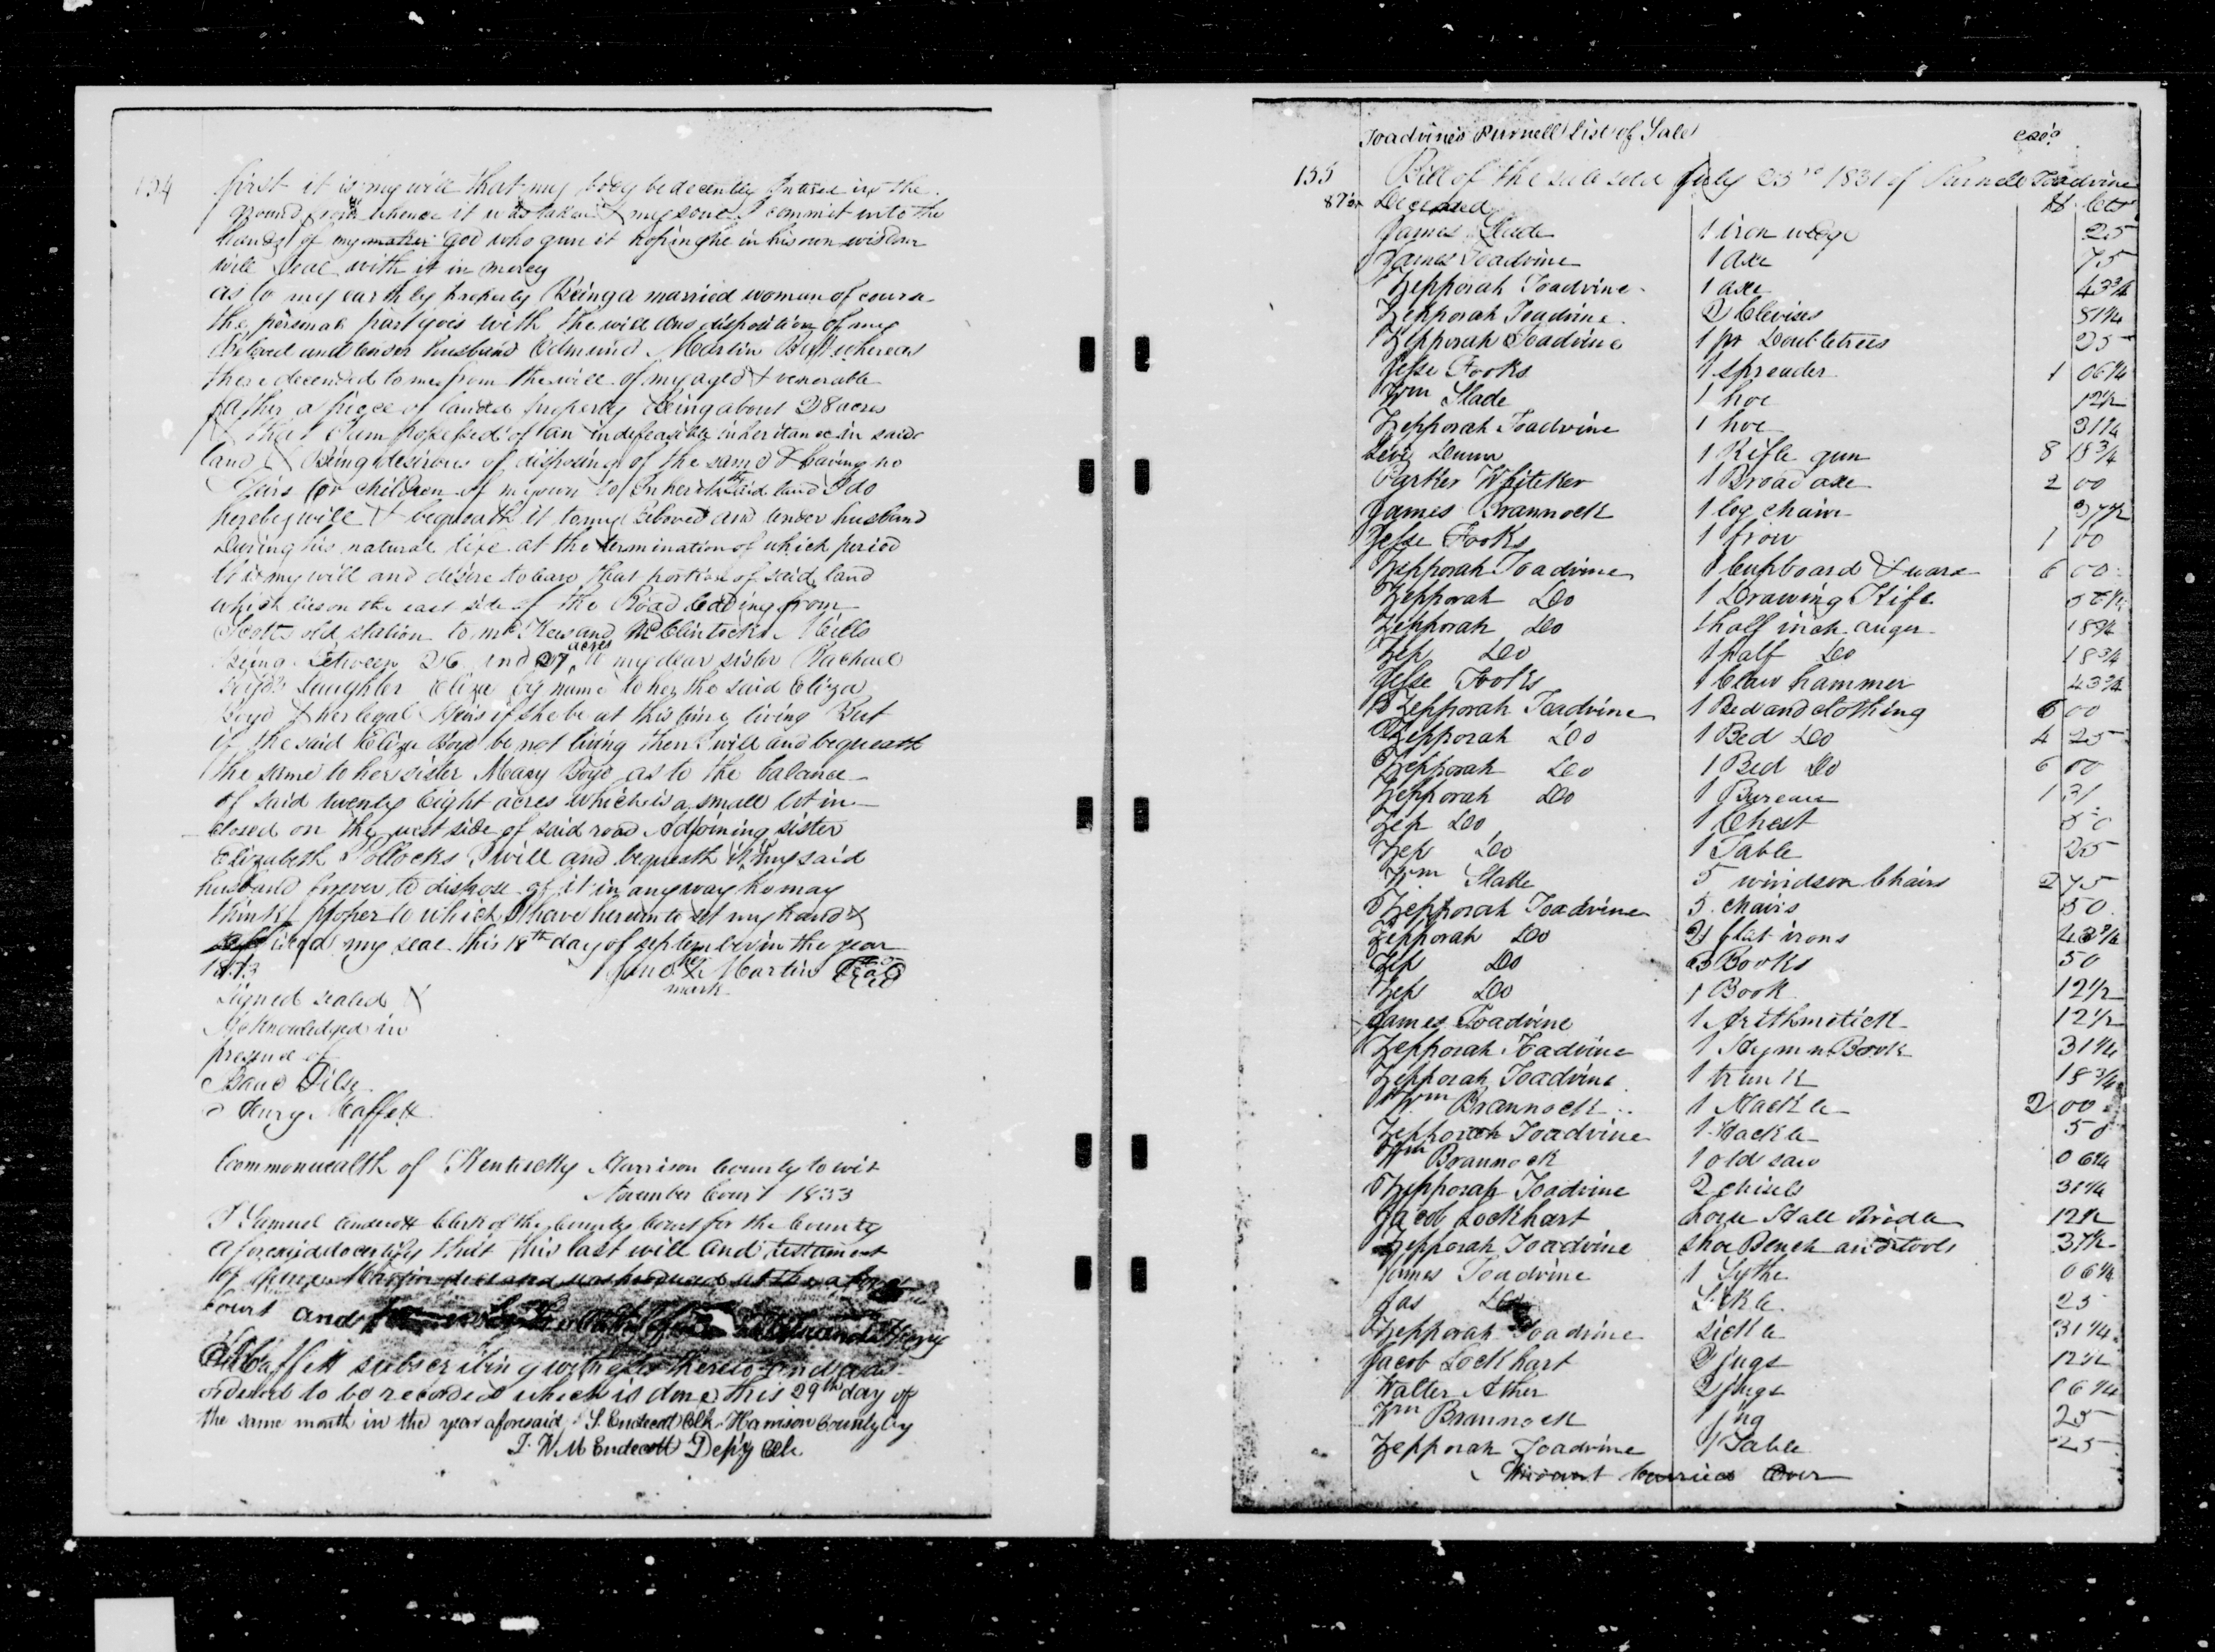 154
first it is my will that my body be decently Intered in the
ground from whence it was taken & my soul I commit into the
hands of my maker god who gave it hoping he in his own wisdom
will deal with it in mercy
as to my earthly property Being a married woman of course
the personal part goes with the will and disposition of my
Beloved and tender husband Edmund Martin But whereas
there decended to me from the will of my aged & venerable
father a piece of landed property being about 28 acres
& that I am possessed of an indefeasible inheritance in said
land & being desirous of disposing of the same & having no
Heirs or children of my own to Inherit said land I do
hereby will & bequeath it to my beloved and tender husband
During his natural life at the termination of which period
It is my will and desire to leave that portion of said land
which lies on the east side of the Road leading from
Scotts old station to Mc Kees and McClintocks Mills
being between 26 and 27 acres to my dear sister Rachael
Boyds daughter Eliza by name to her the said Eliza
Boyd & her legal Heirs if she be at this time living But
if the said Eliza Boyd be not living then I will and bequeath
the same to her sister Mary Boyd as to the balance
of said twenty Eight acres which is a small lot in
closed on the west side of said road Adjoining sister
Elizabeth Pollocks I will and bequeath it to my said
husband forever to dispose of it in any way he may
think proper to which I have hereunto set my hand &
affixed my seal this 18th day of september in the year
her
Jane X Martin Seal
mark
Signed sealed &
Acknowledged in
presence of
Henry Haffett
Commonwealth of Kentucky Harrison County to wit
November Court 1833
I Samuel Endecott Clerk of the County Court for the County
aforesaid do certify that this last will and testament
of Martin deceased was produced at the above
Court and
subscribing witness thereto and
ordered to be recorded which is done this 29th day of
the same month in the year aforesaid S. Endecott Clk Harrison County by
J. W. M Endecott Depy Clk
Toadvine's Purnell List of Sale
155 Bill of the sale sold July 23rd 1831 of Purnell Toadvine
87½ Deceased $ Cts
James Slade 1 iron wedge 25
James Toadvine 1 axe 75
Zepporah Toadvine 1 axe 43¾
Zepporah Toadvine 2 Clevises 81¼
Zepporah Toadvine 1 pr Doubletrees 25
Jesse Fooks 1 spreader 1 06¼
Wm Slade 1 hoe 12½
Zepporah Toadvine 1 hoe 31¼
Levi Dunn 1 Rifle gun 8 18¾
Parker Whiteker 1 Broad axe 2 00
James Brannock 1 log chain 37½
Jesse Fooks 1 frow 1 00
Zepporah Toadvine 1 Cupboard & ware 6 00
Zepporah Do 1 Drawing Kife
Zepporah Do 1 half inch auger 18¾
Zep Do 1 half Do 18¾
Jesse Fooks 1 Claw hammer 43¾
Zepporah Toadvine 1 Bed and clothing 6 00
Zepporah Do 1 Bed Do 4 25
Zepporah Do 1 Bed Do 6 00
Zepporah Do 1 Bureau 1 31
Zep Do 1 Chest 50
Zep Do 1 Table 25
Wm Slade 5 windson Chairs 2 75
Zepporah Toadvine 5 chairs 50
Zepporah Do 2 flat irons 43¾
Zep Do 3 Books 50
Zep Do 1 Book 12½
James Toadvine 1 Arithmetick 12½
Zepporah Toadvine 1 Hymn Book 31¼
Zepporah Toadvine 1 trunk 18¾
Wm Brannock 1 Hackle 2 00
Zepporah Toadvine 1 Hackle 50
Wm Brannock 1 old saw 06¼
Zepporah Toadvine 2 chisels 31¼
Jacob Lockhart Stall Bridle 12½
Zepporah Toadvine shoe Bench and tools 37½
James Toadvine 1 Sythe 06¼
Jas Do Sickle 25
Zepporah Toadvine sickle 31¼
Jacob Lockhart 2 jugs 12½
Walter Ather 2 jugs 06¼
Wm Brannock 1 jug 25
Zepporah Toadvine 1 Table 25
Amount Carried Over